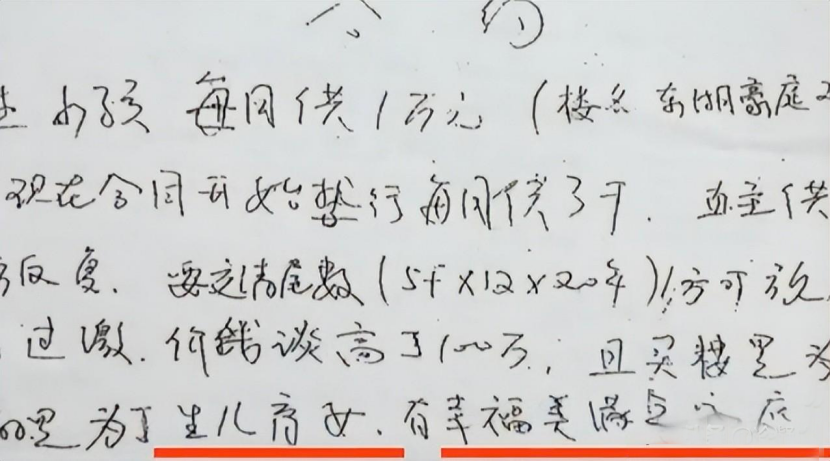 合约
小孩 每月供1万元 (楼名东湖豪庭
现在合同开始執行每月供3千. 直至供
反复. 要交清尾数 (5千×12×20年) 方可放
过激. 价钱谈高了100万, 且买楼是为
的是为了生儿育女. 有幸福美满